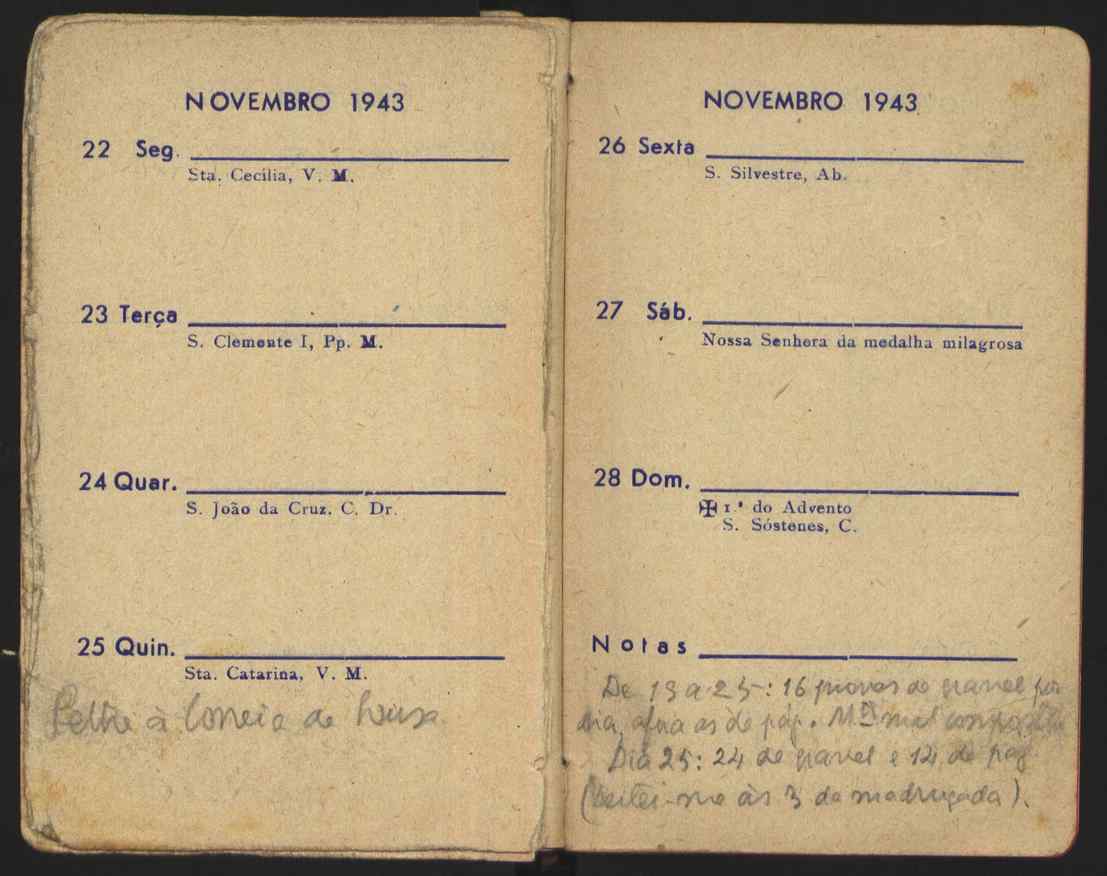 NOVEMBRO 1943
22 Seg.
Sta. Cecília, V. M.
23 Terça
S. Clemente I, Pp. M.
24 Quar.
S. João da Cruz, C. Dr.
25 Quin.
Sta. Catarina, V. M.
à Correia de Sousa
NOVEMBRO 1943
26 Sexta
S. Silvestre, Ab.
27 Sáb.
Nossa Senhora da medalha milagrosa
28 Dom.
✠ 1.º do Advento
S. Sóstenes, C.
Notas
De 19 a 25: 16 provas de granel por
dia, afora as de pág. mal
Dia 25: 24 de granel e 14 de pag
(Deitei-me às 3 da madrugada).